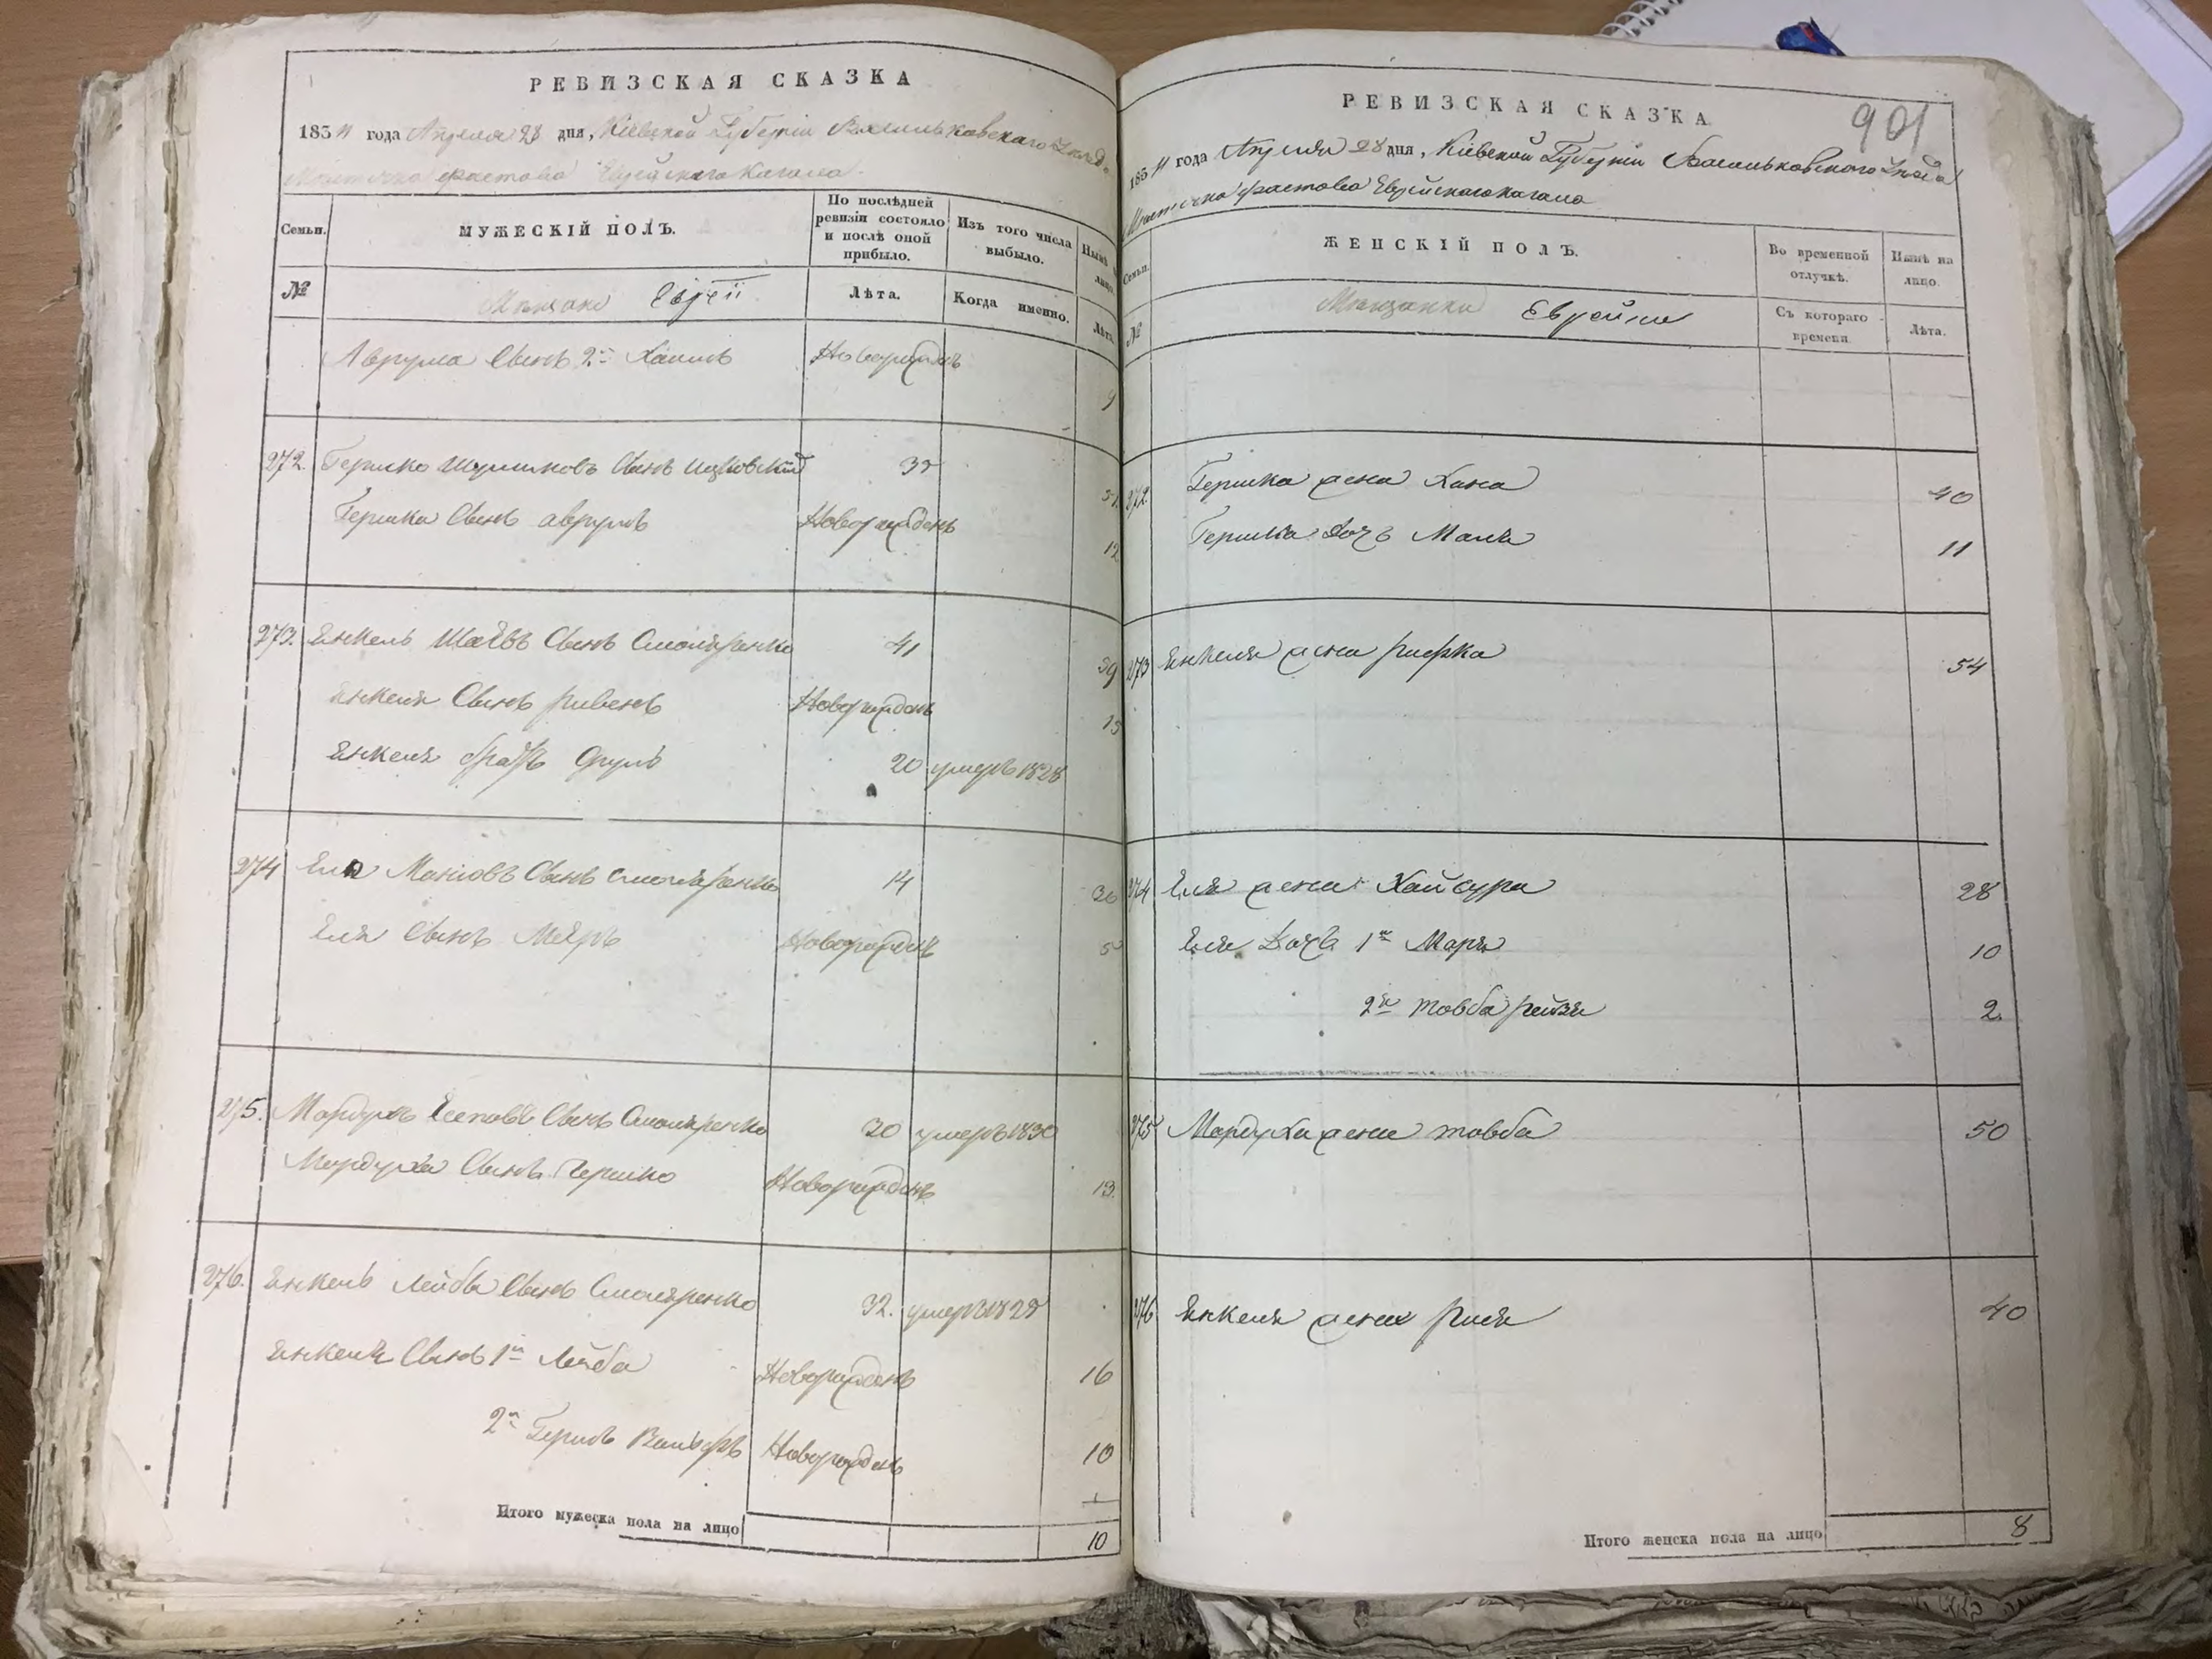 РЕВИЗСКАЯ СКАЗКА
1834 года Апреля 28 дня, Кіевской Губерніи Васильковскаго Уѣзда
Мѣстечка Фастова Еврейскаго Кагала.
Семьи.
МУЖЕСКІЙ ПОЛЪ.
По послѣдней ревизіи состояло и послѣ оной прибыло.
Изъ того числа выбыло.
Нынѣ на лицо.
№
Мѣщане Евреи
Лѣта.
Когда именно.
Лѣта
Аврума Сынъ 2й Хаимъ Новорожденъ 9
272. Гершко Шулимовъ Сынъ Ицковскій 35
Гершка Сынъ аврумъ Новорожденъ 12
273. Янкель Шаевъ Сынъ Смоляренко 41 59
Янкеля Сынъ ривенъ Новорожденъ 13
Янкеля братъ 20 умеръ 1828
274 Еля Маніовъ Сынъ Смоляренко 14 30
Еля Сынъ Меяръ Новорожденъ 5
275. Мордухъ Есеповъ Сынъ Смоляренко 30 умеръ 1830
Мордуха Сынъ Гершко Новорожденъ 13.
276. Янкель Лейбы Сынъ Смоляренко 32. умеръ 1829
Янкеля Сынъ 1й Лейба Новорожденъ 16
2й Гершъ Вольфъ Новорожденъ 10
Итого мужеска пола на лицо 10
901
РЕВИЗСКАЯ СКАЗКА
1834 года Апреля 28 дня, Кіевской Губерніи Васильковскаго Уѣзда
Мѣстечка Фастова Еврейскаго кагала
Семьи.
ЖЕНСКІЙ ПОЛЪ.
Во временной отлучкѣ.
Нынѣ на лицо.
№
Мѣщанки Еврейки
Съ котораго времени.
Лѣта.
272. Гершка жена Хана 40
Гершка Дочь Маля 11
273 Янкеля жена рифка 54
274 Еля жена Хайсура 28
Еля Дочь 1я Маря 10
2я товба рейзя 2.
275 Мордуха жена товба 50
276 Янкеля жена рися 40
Итого женска пола на лицо 8